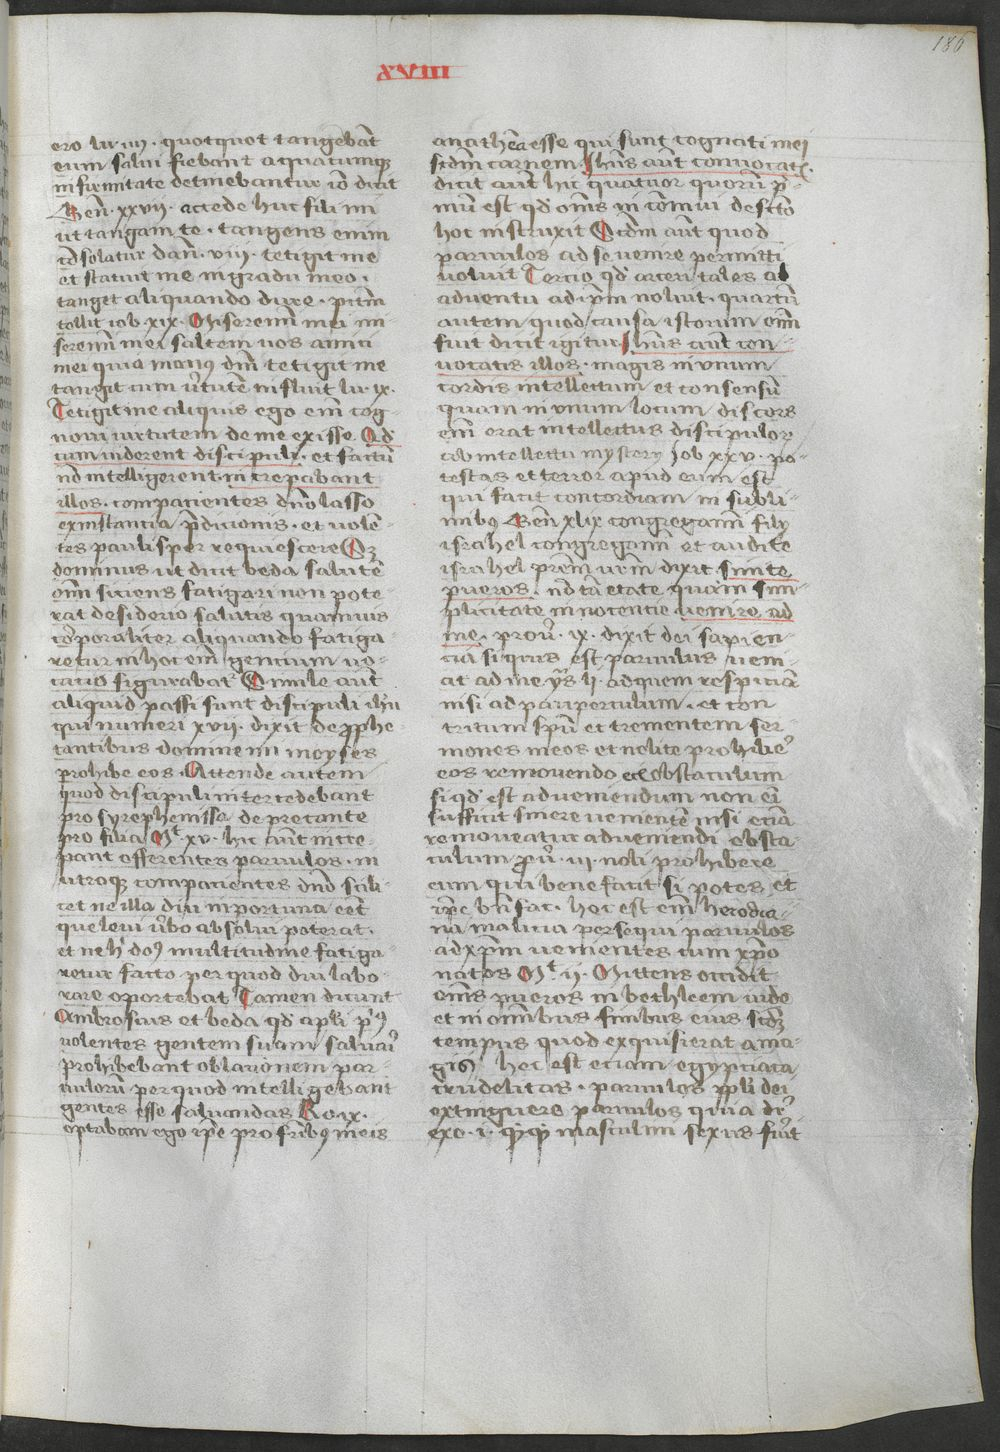 186
XVIII
ero lu. iiij. quotquot tangebāt
eum salui fiebant a quacumqꝫ
infirmitate detinebantur iō dicit
Gen̄. xxvij. accede huc fili mi
ut tangam te. tangens enim
cōsolatur dan̄. viij. tetigit me
et statuit me in gradu meo.
tanget aliquando dure. pit̄m
tollit iob. xix. Miseremī mei mi
seremī mei saltem uos amici
mei quia manꝰ dn̄i tetigit me
tangit cum v̓tutē influit lu. ix.
Tetigit me aliquis ego em̄ cog-
noui uirtutem de me exisse. Qd̓
cum uiderent discipuli. et factū
nō intelligerent. increpabant
illos. compacientes dn̄o lasso
ex instancia p̄dicionis. et uolē-
tes paulisper requiescere Qꝫ
dominus ut dicit beda salutē
om̄i siciens fatigari non pote-
rat desiderio salutis quamuis
corporaliter aliquando fatiga-
retur in hoc em̄ gencium uo-
catio figurabat̓ Simile aūt
aliquid passi sunt discipuli ih̄u
qui numeri xvij. dixit de ꝓphe-
tantibus domine mi moyses
prohibe eos. Attende autem
quod discipuli intercedebant
pro syrephenissa deprecante
pro filia Mᵗ xv. hic aūt incre-
pant offerentes paruulos. in
utroqꝫ compacientes dn̄o scili-
cet ne illa diu inportuna eēt
que leui v̓bo absolui poterat.
et ne h̓ doꝰ multitudine fatiga-
retur facto per quod diu labo-
rare oportebat Tamen dicunt
Ambrosius et beda qd̓ apl̓i pꝰ
uolentes gentem suam saluari
prohibebant oblacionem par-
uulorū per quod intelligebant
gentes esse saluandas Ro. ix.
optabam ego ip̄e pro fr̄ibꝰ meis
anathēa esse qui sunt cognati mei
scd̄m carnem. Ih̄us aūt conuocat̓.
dicit aūt hic quatuor quorū p̓-
mū est qd̓ om̄s in cōmui de fc̄o
hoc instruxit Scd̄m aūt quod
paruulos ad se uenire permitti
uoluit Tercio qd̓ arceri tales ab
aduentu ad ip̄m noluit. quartū
autem quod causa istorum em̄
fuit dicit igitur Ih̄us aūt con-
uocatis illos. magis in vnum
cordis intellectum et consensū
quam in vnum locum discors
em̄ erat intellectus discipulor̄
ab intellectu mystery Iob xxv. po-
testas et terror apud eum est
qui facit concordiam in subli-
mibꝰ Gen̄ xlix congregamī filij
israhel congregamī et audite
israhel prēm vr̄m dixit sinite
pueros. nō tā etate quam sim-
plicitate innocentie uenire ad
me. prou̓. ix. dixit dei sapien-
cia si quis est paruulus ueni-
at ad me ys̓ lj. ad quem respiciā
nisi ad pauperculum. et con
tritum sp̄u et trementem ser-
mones meos et nolite prohibe̓
eos remouendo eciā obstaculum
si qd̓ est ad ueniendum non em̄
sufficit sinere uenientē nisi eciā
remoueatur ad ueniendi obsta-
culum prū. iij. noli prohibere
eum qui bene facit si potes et
ip̄e bn̄ fac. hoc est em̄ herodia-
na malicia persequi paruulos
ad xp̄m uenientes cum xp̄o
natos Mᵗ. ij. Mittens occidit
om̄s pueros in bethleem iude
et in omnibus finibus eius scd̄ꝫ
tempus quod exquisierat a ma-
gis hec est eciam egypciaca
crudelitas. paruulos ppl̓i dei
extinguere paruulos quia dr̓
exo. i. qͥqͥ masculini sexus fu̓it